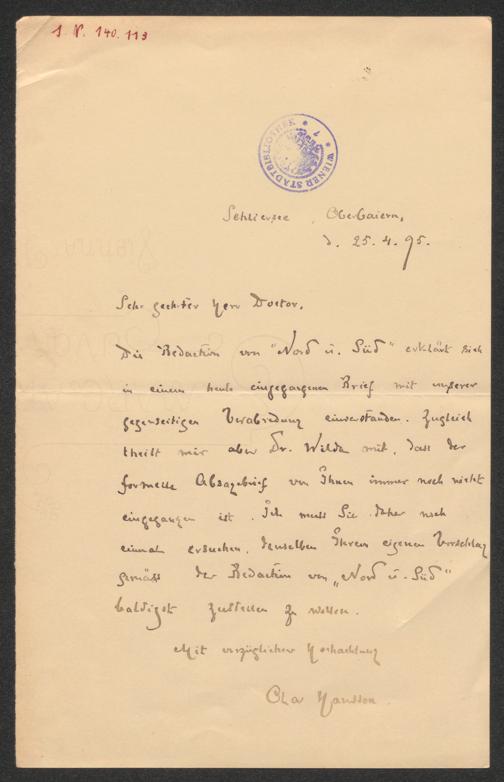 I. N. 140.113
WIENER STADTBIBLIOTHEK
Schliersee, Oberbaiern,
d. 25.4.95.
Sehr geehrter Herr Doctor,
Die Redaction von "Nord u. Süd" erklärt sich
in einem heute eingegangenen Brief mit unserer
gegenseitigen Verabredung einverstanden. Zugleich
theilt mir aber Dr. Wilda mit, dass der
formelle Absagebrief von Ihnen immer noch nicht
eingegangen ist. Ich muss Sie daher noch
einmal ersuchen, denselben Ihrem eigenen Vorschlag
gemäss der Redaction von „Nord u. Süd"
baldigst zustellen zu wollen.
Mit vorzüglicher Hochachtung
Ola Hansson.